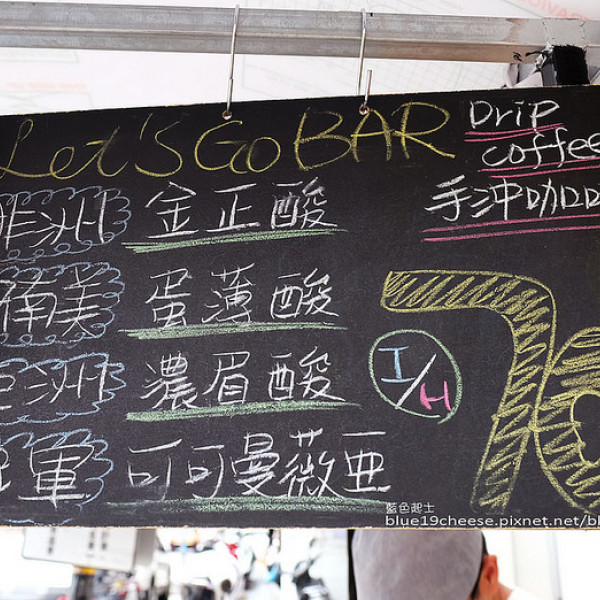 Let's Go BAR
Drip
coffee
手沖咖
非洲 金正酸
南美 蛋薄酸
亞洲 濃眉酸
冠軍 可可曼薇亜
I/H
70
藍色起士
blue19cheese.pixnet.net/bl